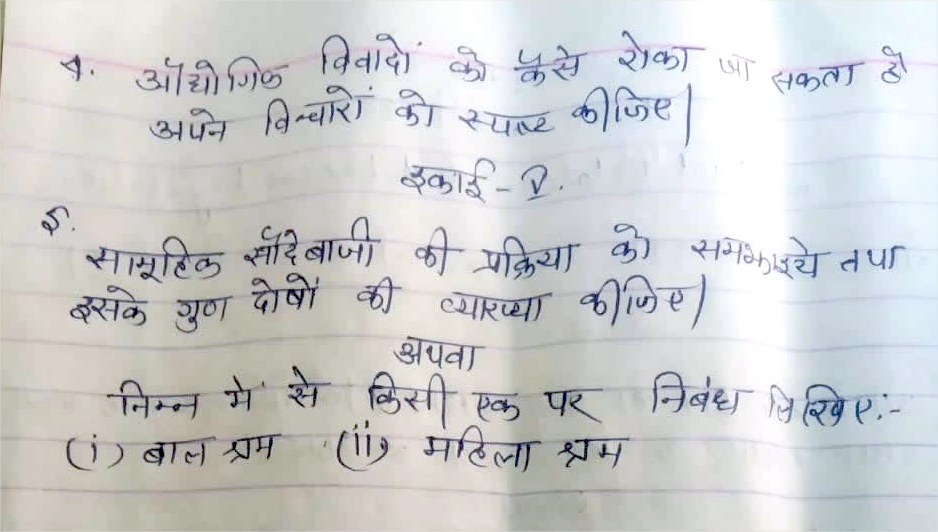 4. औद्योगिक विवादों को कैसे रोका जा सकता है
अपने विचारों को स्पष्ट कीजिए|
इकाई - V.
5.
सामूहिक सौदेबाजी की प्रक्रिया को समझाइये तथा
इसके गुण दोषों की व्याख्या कीजिए|
अथवा
निम्न में से किसी एक पर निबंध लिखिए:-
(i) बाल श्रम (ii) महिला श्रम